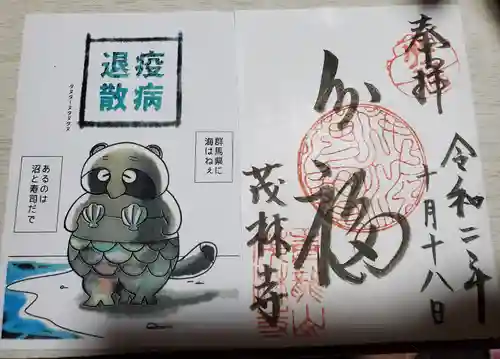 奉拝
令和二年
十月十八日
分福
茂林寺
疫病
退散
タヌターヌマタヌヌ
群馬県に
海はねぇ
あるのは
沼と寿司だで